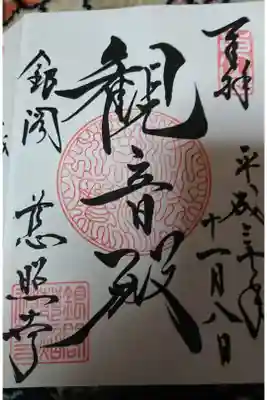 奉拝
平成三十年
十一月八日
観音殿
銀閣
慈照寺